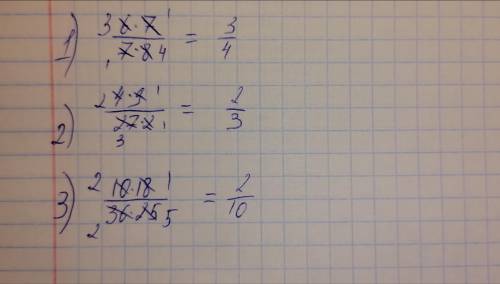 1) 3 6·7 1 / 1 7·8 4 = 3/4
2) 2 4·9 1 / 3 27·2 1 = 2/3
3) 2 10·18 1 / 2 36·25 5 = 2/10